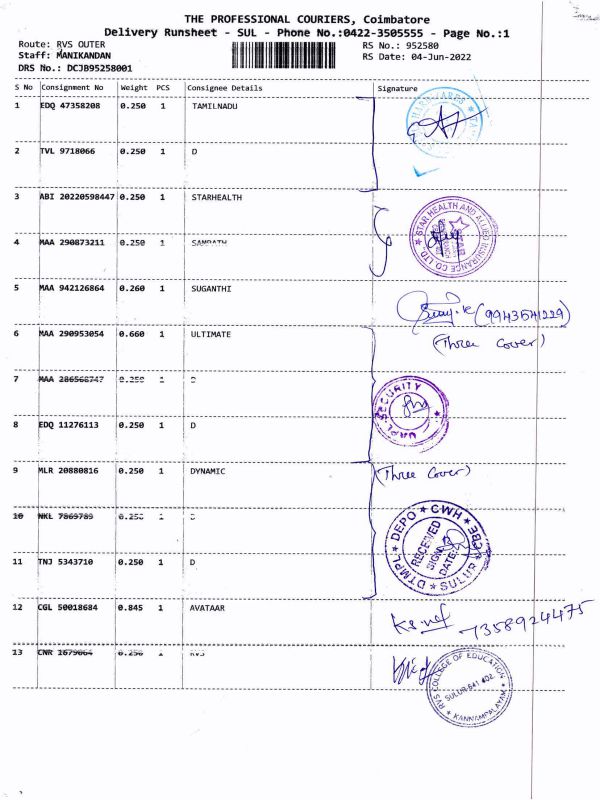 THE PROFESSIONAL COURIERS, Coimbatore
Delivery Runsheet - SUL - Phone No.:0422-3505555 - Page No.:1
Route: RVS OUTER
RS No.: 952580
Staff: MANIKANDAN
RS Date: 04-Jun-2022
DRS No.: DCJB95258001
S No Consignment No Weight PCS Consignee Details Signature
1 EDQ 47358208 0.250 1 TAMILNADU
2 TVL 9718066 0.250 1 D
3 ABI 20220598447 0.250 1 STARHEALTH
STAR HEALTH AND ALLIED INSURANCE CO. LTD.
4 MAA 290873211 0.250 1 SAMPATH
5 MAA 942126864 0.260 1 SUGANTHI
(9943541229)
6 MAA 290953054 0.660 1 ULTIMATE
(Three Cover)
7 MAA 286568747 0.250 1 D
SECURITY
8 EDQ 11276113 0.250 1 D
9 MLR 20880816 0.250 1 DYNAMIC
(Three Cover)
10 NKL 7869789 0.250 1 D
DTMPL ★ DEPO ★ CWH ★ CBE ★ SULUR
RECEIVED
SIGN
DATE:
11 TNJ 5343710 0.250 1 D
12 CGL 50018684 0.845 1 AVATAAR
7358924475
13 CNR 1679064 0.250 1 RVS
RVS COLLEGE OF EDUCATION
SULUR-641 402
★ KANNAMPALAYAM ★